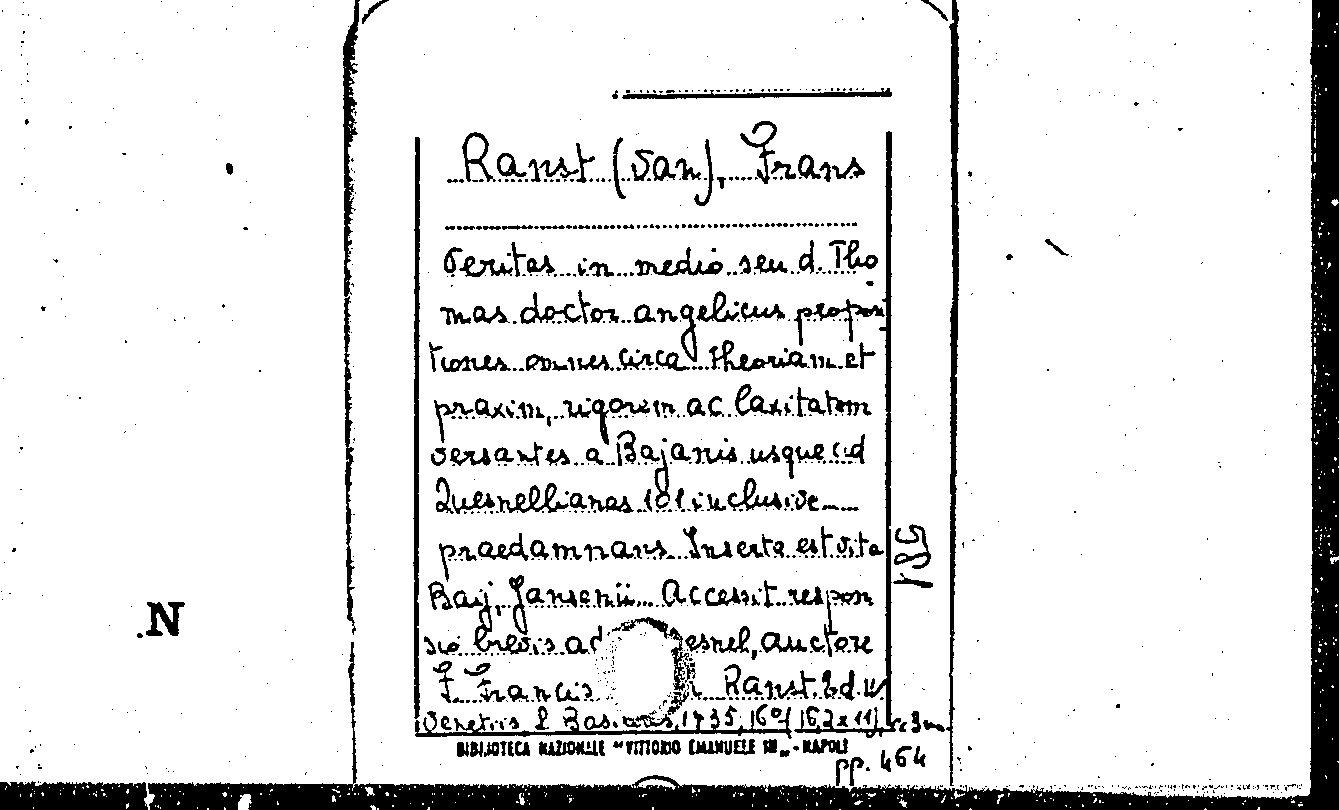 Ranst (van), Frans
Veritas in medio seu d. Tho
mas doctor angelicus proposi
tiones omnes circa theoriam et
praxim, rigorem ac laxitatem
versantes a Bajanis usque ad
Quesnellianas 101 inclusive
praedamnans. Inserta est vita
Baij, Jansenii... Accessit respon
sio brevis ad esnel, auctore
F. Francis Ranst. Ed.
Venetiis, 1735, 16° (16,2 x 11),
BIBLIOTECA NAZIONALE "VITTORIO EMANUELE III" - NAPOLI
pp. 464
581
.N